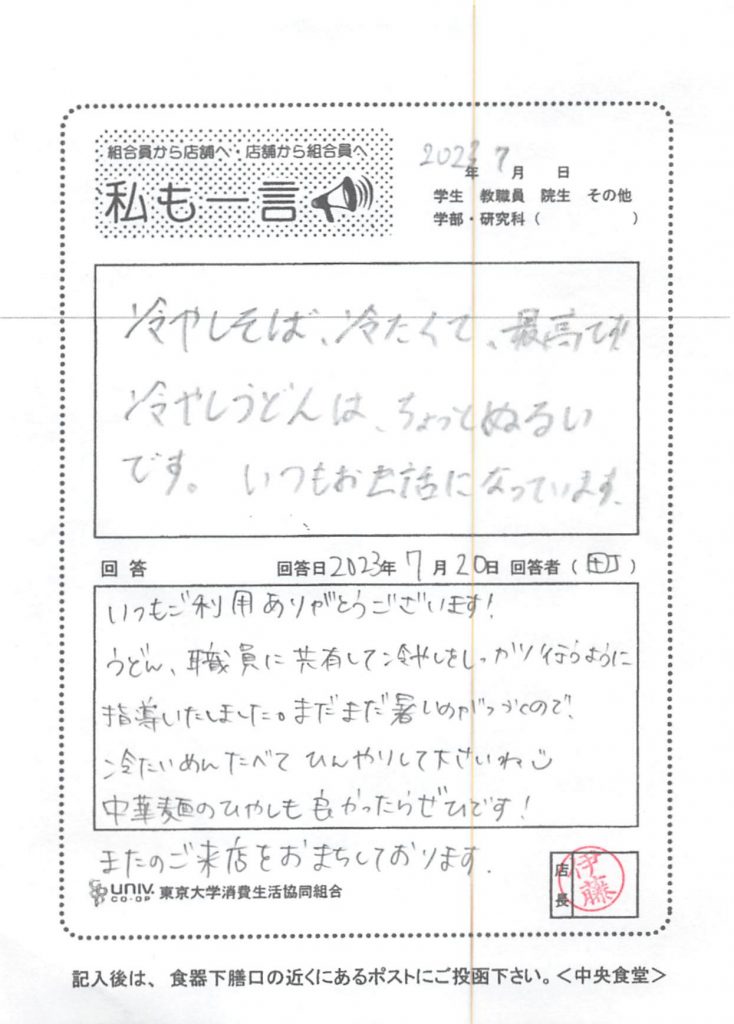 組合員から店舗へ・店舗から組合員へ
私も一言
2023 7
年 月 日
学生 教職員 院生 その他
学部・研究科( )
冷やしそば、冷たくて、最高です
冷やしうどんは、ちょっとぬるい
です。 いつもお世話になっています。
回答 回答日2023年7月20日 回答者( )
いつもご利用ありがとうございます!
うどん、職員に共有して冷やしをしっかり行うように
指導いたしました。まだまだ暑いのがつづくので、
冷たいめんたべてひんやりして下さいね
中華麺のひやしも良かったらぜひです!
またのご来店をおまちしております.
UNIV. CO-OP 東京大学消費生活協同組合
店長 伊藤
記入後は、食器下膳口の近くにあるポストにご投函下さい。<中央食堂>